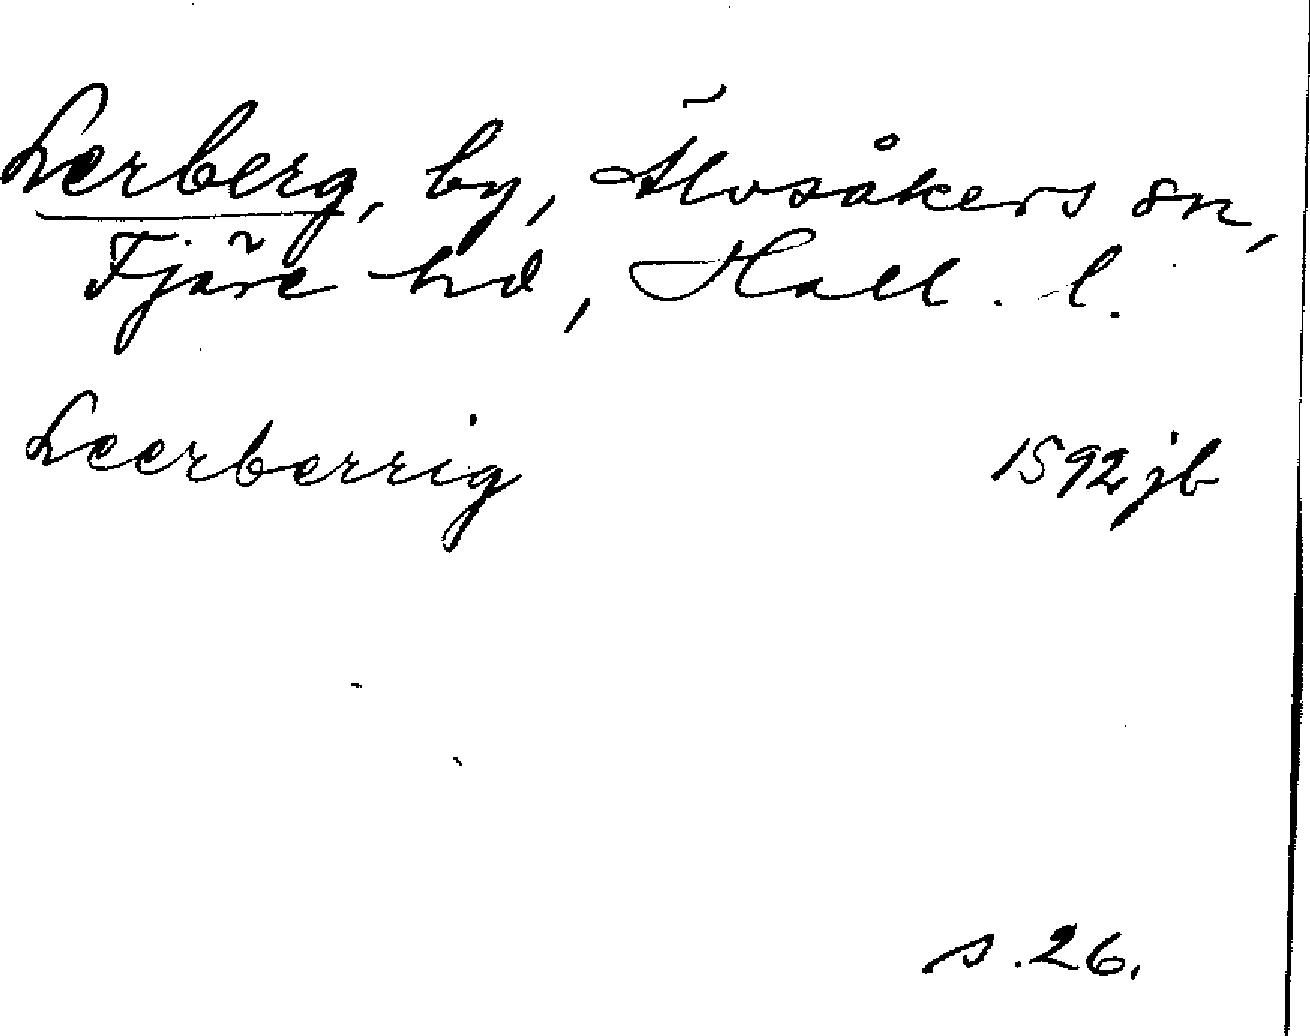 Lerberg, by, Älvsåkers sn,
Fjäre hd, Hall. l.
Leerberrig 1592 jb
s. 26.